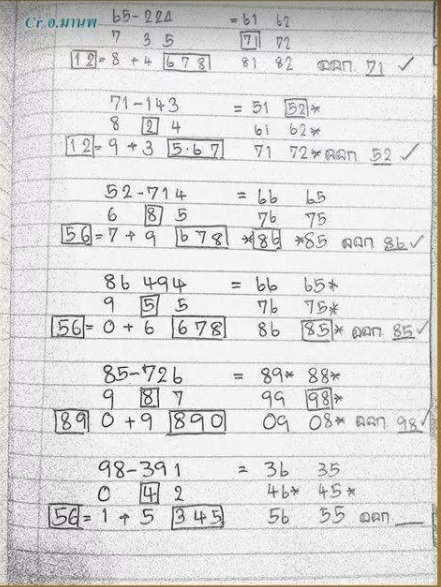 Cr อ.มานพ
65-224 = 61 62
7 3 5 71 72
12 = 8 + 4 678 81 82 ออก 71 ✓
71-143 = 51 52*
8 2 4 61 62*
12 = 9 + 3 5·67 71 72* ออก 52 ✓
52-714 = 66 65
6 8 5 76 75
56 = 7 + 9 678 *86 *85 ออก 86 ✓
86 494 = 66 65*
9 5 5 76 75*
56 = 0 + 6 678 86 85* ออก 85 ✓
85-726 = 89* 88*
9 8 7 99 98*
89 0 + 9 890 09 08* ออก 98 ✓
98-391 = 36 35
0 4 2 46* 45*
56 = 1 + 5 345 56 55 ออก ___